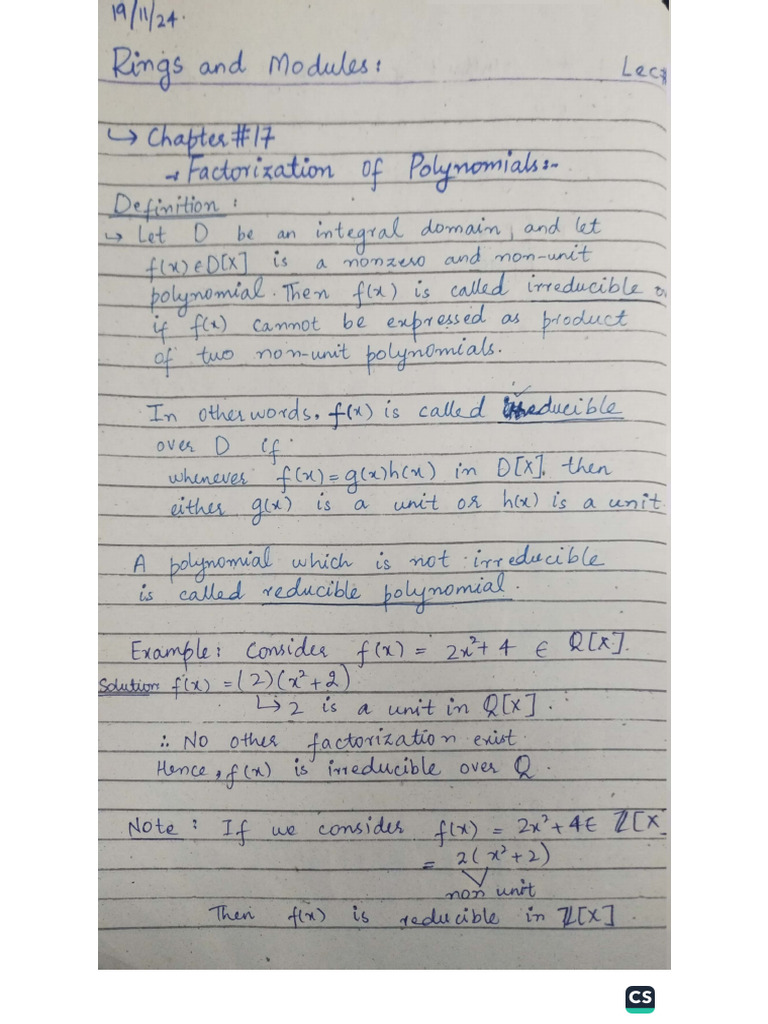 19/11/24.
Rings and Modules: Lec
↳ Chapter #17
→ Factorization Of Polynomials:-
Definition:
↳ Let D be an integral domain, and let
f(x) ∈ D[X] is a nonzero and non-unit
polynomial. Then f(x) is called irreducible o
if f(x) cannot be expressed as product
of two non-unit polynomials.
In otherwords, f(x) is called irreducible
over D if
whenever f(x) = g(x)h(x) in D[X]. then
either g(x) is a unit or h(x) is a unit.
A polynomial which is not irreducible
is called reducible polynomial.
Example: Consider f(x) = 2x²+ 4 ∈ Q[X].
Solution f(x) = (2)(x²+2)
↳ 2 is a unit in Q[X].
∴ No other factorization exist.
Hence, f(x) is irreducible over Q.
Note: If we consider f(x) = 2x²+4 ∈ Z[X
= 2(x²+2)
non unit
Then f(x) is reducible in Z[X].
CS